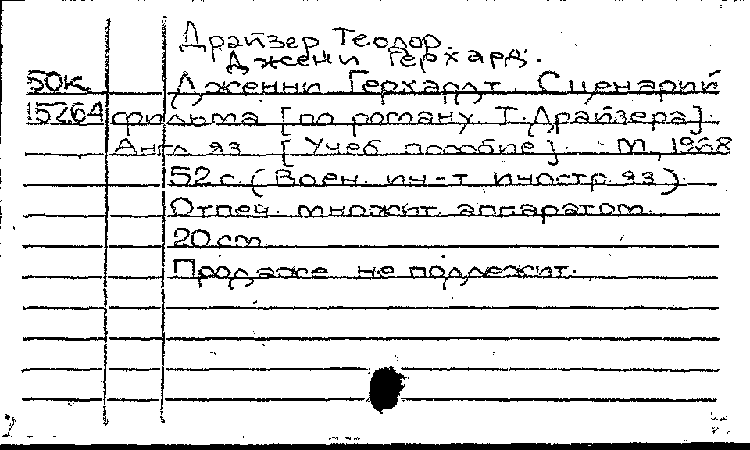 Драйзер Теодор.
Джени Герхард.
50к Дженни Герхардт. Сценарий
15264 фильма [по роману Т. Драйзера].
Англ яз [Учеб пособие]. - М, 1968
52 с. (Воен. ин-т иностр яз).
Отпеч. множит. аппаратом.
20 см
Продаже не подлежит.